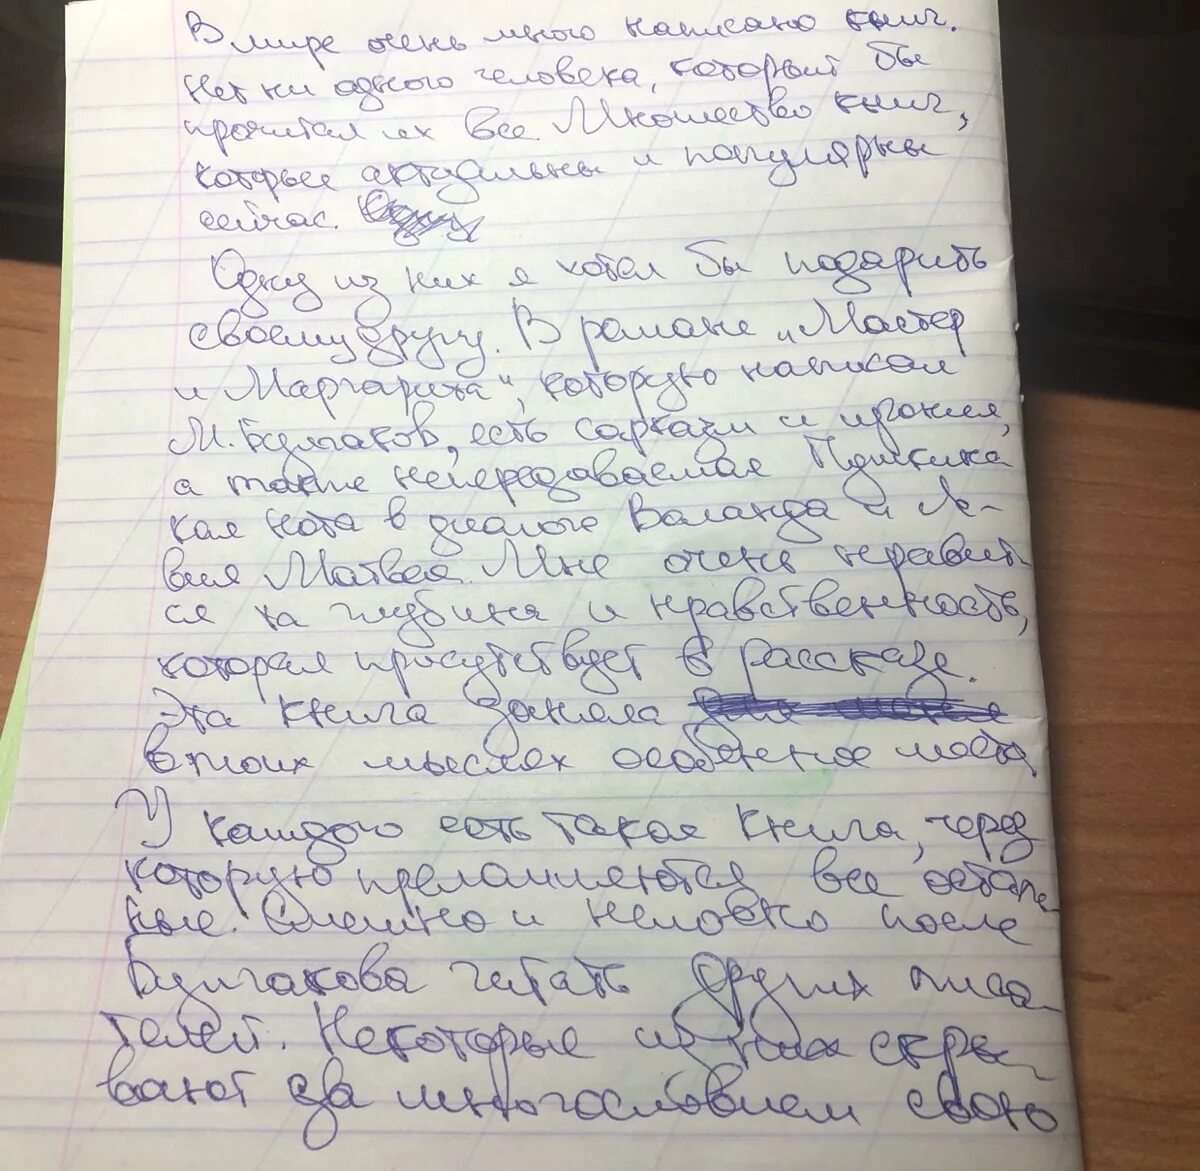 В мире очень много написано книг.
Нет ни одного человека, который бы
прочитал их все. Множество книг,
которые актуальны и популярны
сейчас.
Одну из них я хотел бы подарить
своему другу. В романе „Мастер
и Маргарита", которую написал
М. Булгаков, есть сарказм и ирония,
а также непередаваемая
кая нота в диалоге Воланда и Ле-
вия Матвея. Мне очень нравит-
ся та глубина и нравственность,
которая присутствует в рассказе.
Эта книга заняла
в моих мыслях особенное место.
У каждого есть такая книга, через
которую преломляются все осталь-
ные. Смешно и неловко после
Булгакова читать других писа-
телей. Некоторые из них скры-
вают за многословием свою